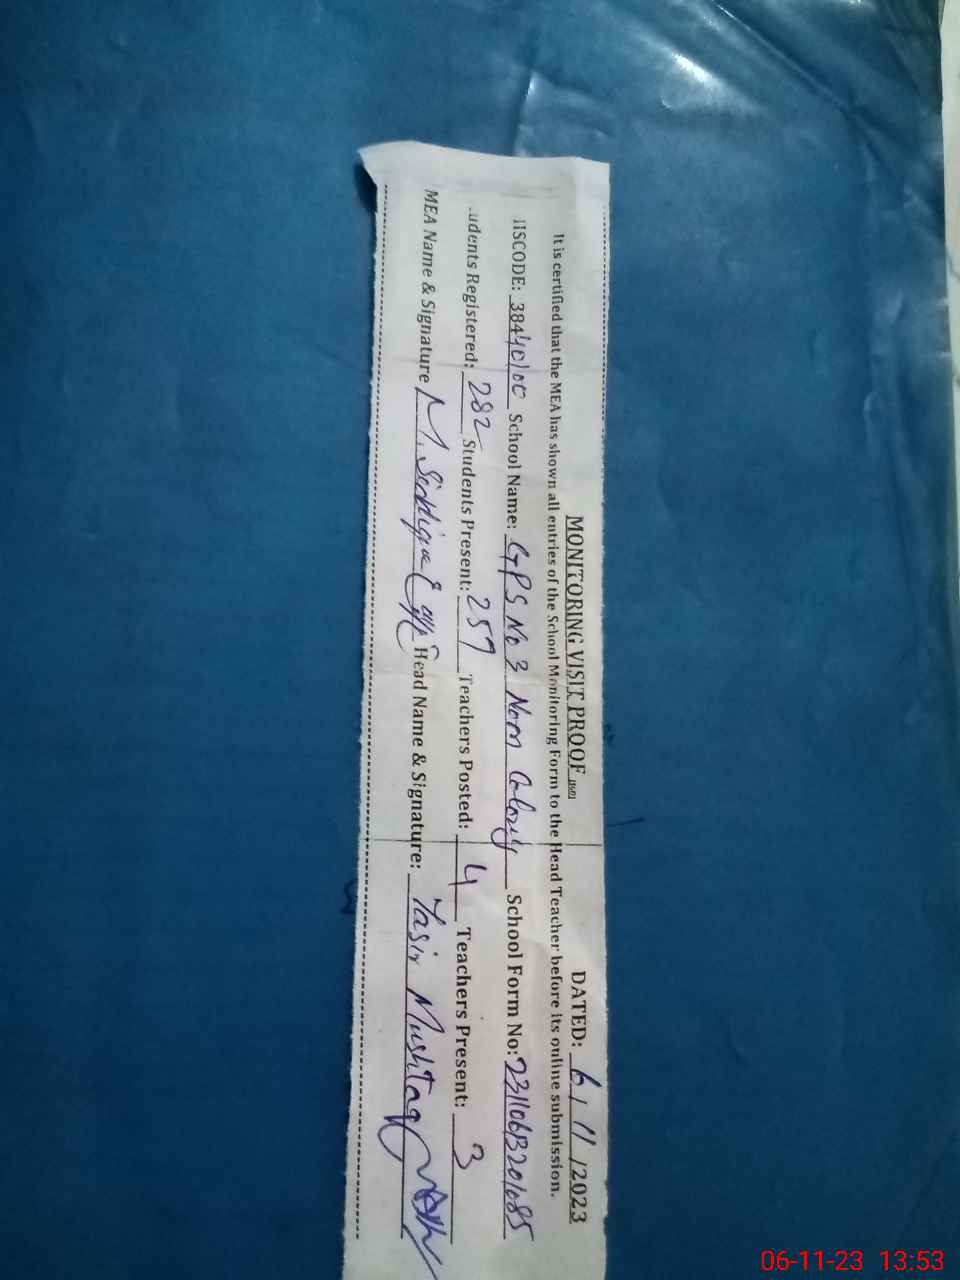 MONITORING VISIT PROOF DATED: 6 / 11 /2023
It is certified that the MEA has shown all entries of the School Monitoring Form to the Head Teacher before its online submission.
ISCODE: School Name: GPS No 3 Noon Colony School Form No:
udents Registered: 282 Students Present: 257 Teachers Posted: 4 Teachers Present: 3
MEA Name & Signature M. Siddique Head Name & Signature: Yasir Mushtaq
06-11-23 13:53